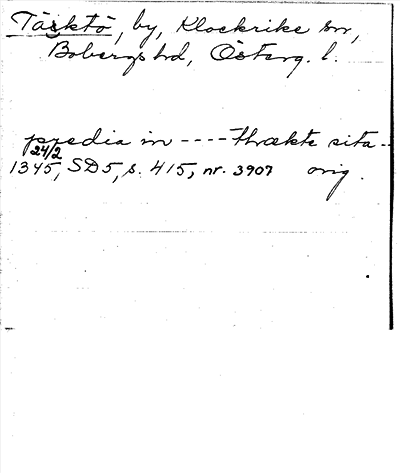 Täcktö, by, Klockrike sn,
Bobergs hd, Österg. l.
predia in ---- thrækte sita --
24/2
1345, SD5, s. 415, nr. 3907 orig.